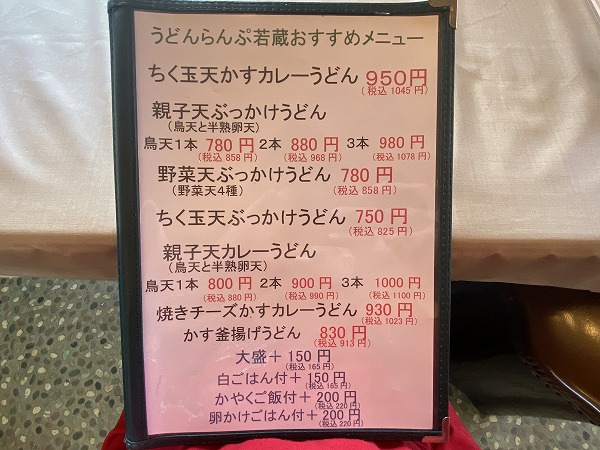 うどんらんぷ若蔵おすすめメニュー
ちく玉天かすカレーうどん 950円
(税込 1045 円)
親子天ぶっかけうどん
(鳥天と半熟卵天)
鳥天1本 780 円 2本 880 円 3本 980 円
(税込 858 円) (税込 968 円) (税込 1078 円)
野菜天ぶっかけうどん 780 円
(野菜天4種) (税込 858 円)
ちく玉天ぶっかけうどん 750 円
(税込 825 円)
親子天カレーうどん
(鳥天と半熟卵天)
鳥天1本 800 円 2本 900 円 3本 1000 円
(税込 880 円) (税込 990 円) (税込 1100 円)
焼きチーズかすカレーうどん 930 円
(税込 1023 円)
かす釜揚げうどん 830 円
(税込 913 円)
大盛+150円
(税込 165 円)
白ごはん付+150円
(税込 165 円)
かやくご飯付+200円
(税込 220 円)
卵かけごはん付+200円
(税込 220 円)